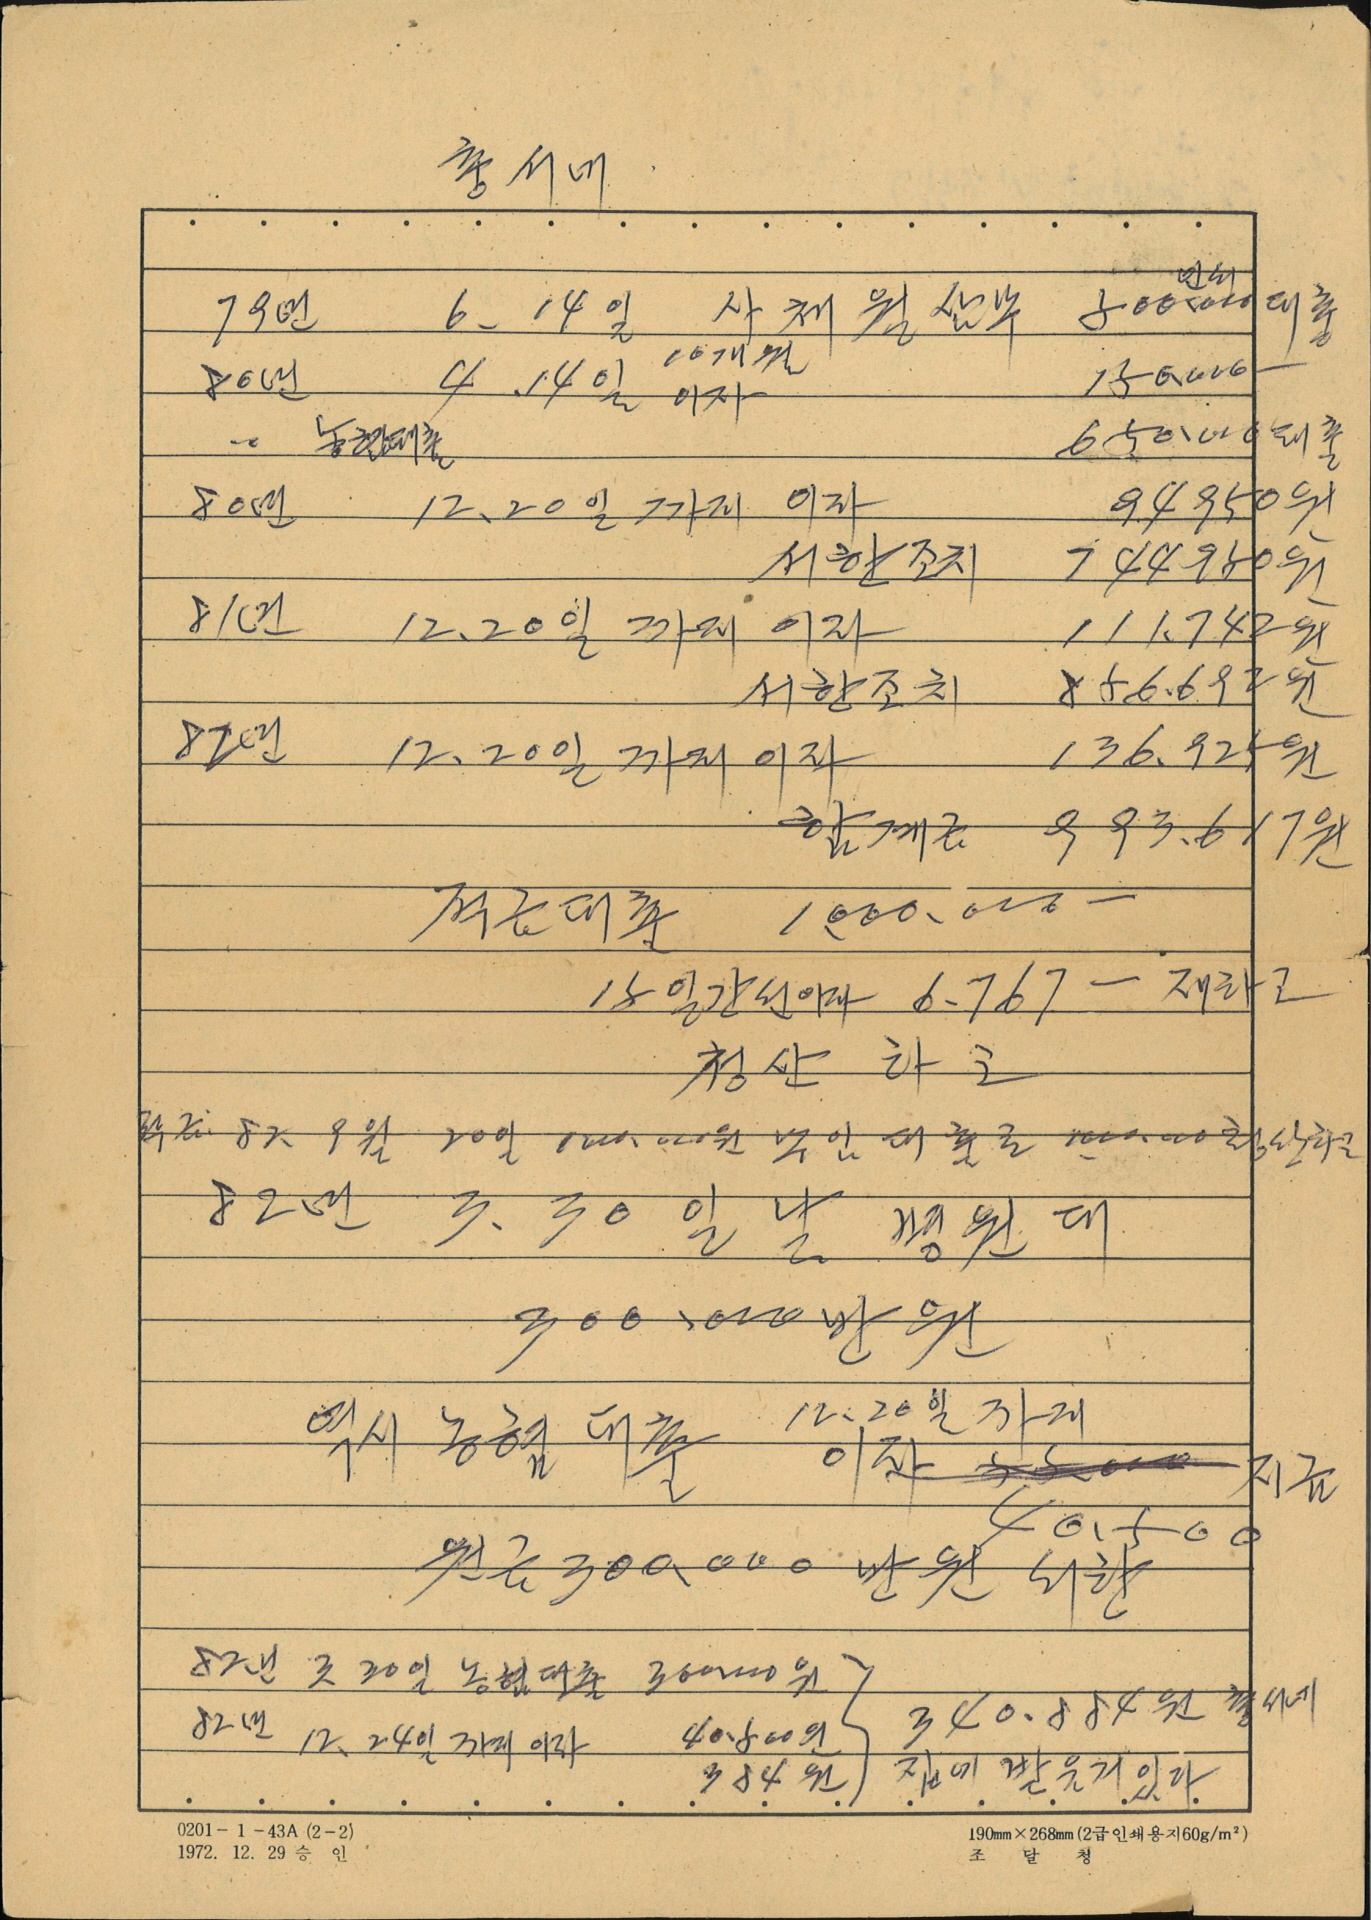 충 서네
79년 6. 14일 사채 월 삼부 500.000 대출
80년 4. 14일 10개월 이자 150.000
〃 농협대출 650.000 대출
80년 12.20일 까지 이자 94950원
서한조치 744950원
81년 12.20일 까지 이자 111.742원
서한조치 856.692원
82년 12.20일 까지 이자 136.925원
합계금 993.617원
적금대출 1000.000 —
15일간 이자 6.767 — 제하고
청산 하고
82. 9월 20일 대출로 청산하고
82년 3. 30일 날 병원대
300.000 반원
역시 농협 대출 12.20일 까지
이자 지급
40.500
원금 300.000 반원
82년 3 30일 농협대출 300000원
82년 12. 24일 까지 이자 40.500원
384원
340.884원 충서네
집에 받을게 있다
0201-1-43A (2-2)
1972. 12. 29 승 인
190mm×268mm(2급인쇄용지60g/m²)
조 달 청